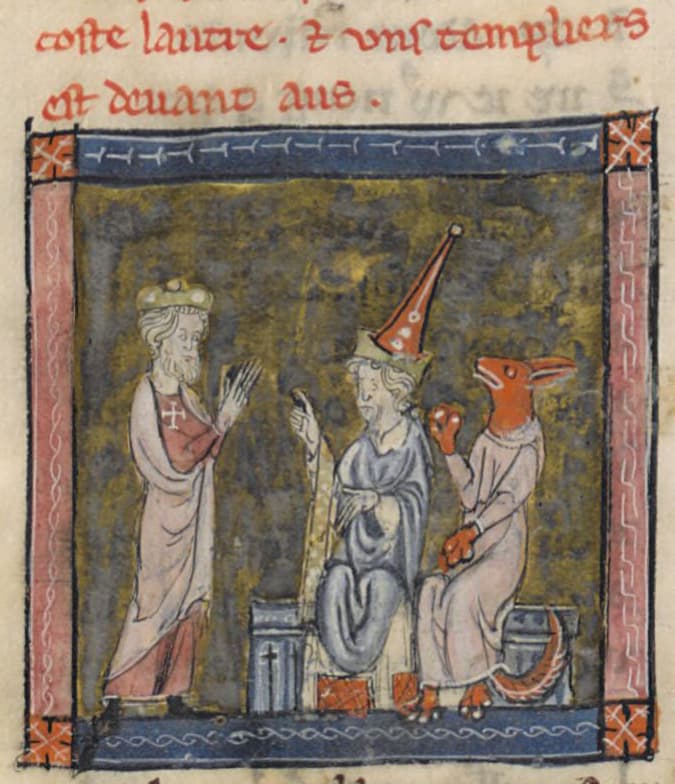 coste lautre. ⁊ vns templiers
est deuant aus.